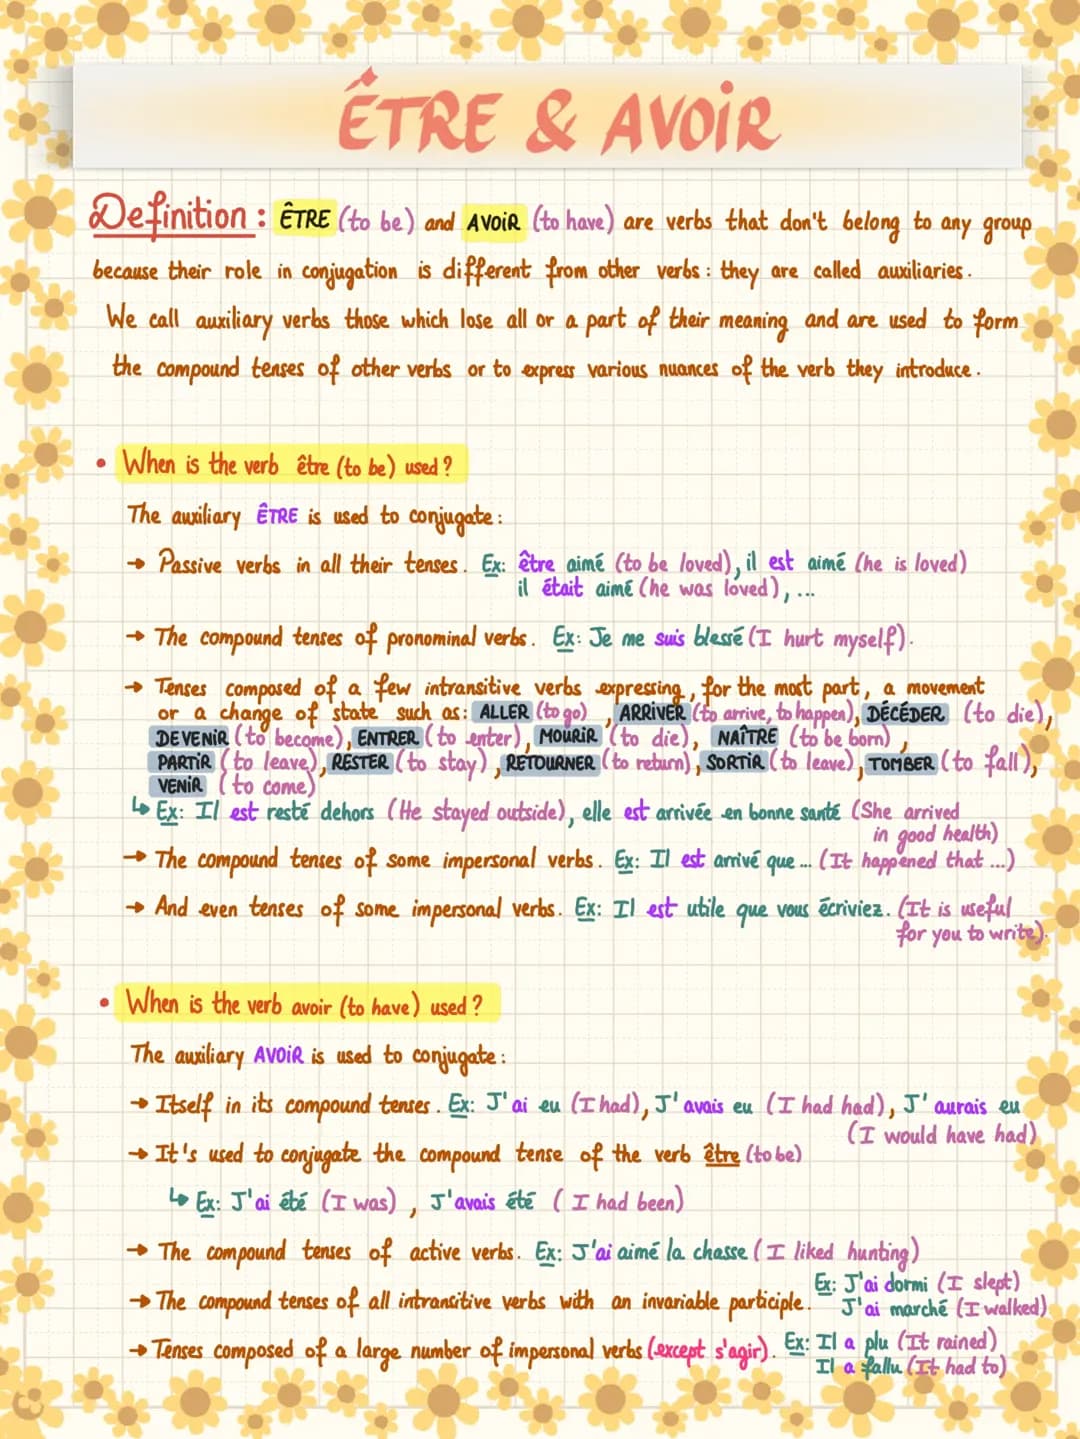 ÊTRE & AVOIR
Definition: ÊTRE (to be) and AVOIR (to have) are verbs that don't belong to any group
because their role in conjugation is different from other verbs: they are called auxiliaries.
We call auxiliary verbs those which lose all or a part of their meaning and are used to form
the compound tenses of other verbs or to express various nuances of the verb they introduce.
• When is the verb être (to be) used?
The auxiliary ÊTRE is used to conjugate:
→ Passive verbs in all their tenses. Ex: être aimé (to be loved), il est aimé (he is loved)
il était aimé (he was loved), ...
→ The compound tenses of pronominal verbs. Ex: Je me suis blessé (I hurt myself).
→ Tenses composed of a few intransitive verbs expressing, for the most part, a movement
or a change of state such as: ALLER (to go), ARRIVER (to arrive, to happen), DÉCÉDER (to die),
DEVENIR (to become), ENTRER (to enter), MOURIR (to die), NAÎTRE (to be born),
PARTIR (to leave), RESTER (to stay), RETOURNER (to return), SORTIR (to leave), TOMBER (to fall),
VENIR (to come)
↳ Ex: Il est resté dehors (He stayed outside), elle est arrivée en bonne santé (She arrived
in good health)
→ The compound tenses of some impersonal verbs. Ex: Il est arrivé que... (It happened that ...)
→ And even tenses of some impersonal verbs. Ex: Il est utile que vous écriviez. (It is useful
for you to write).
• When is the verb avoir (to have) used?
The auxiliary AVOIR is used to conjugate:
→ Itself in its compound tenses. Ex: J'ai eu (I had), J'avais eu (I had had), J'aurais eu
(I would have had)
→ It's used to conjugate the compound tense of the verb être (to be)
↳ Ex: J'ai été (I was), J'avais été (I had been)
→ The compound tenses of active verbs. Ex: J'ai aimé la chasse (I liked hunting)
→ The compound tenses of all intransitive verbs with an invariable participle. Ex: J'ai dormi (I slept)
J'ai marché (I walked)
→ Tenses composed of a large number of impersonal verbs (except s'agir). Ex: Il a plu (It rained)
Il a fallu (It had to)